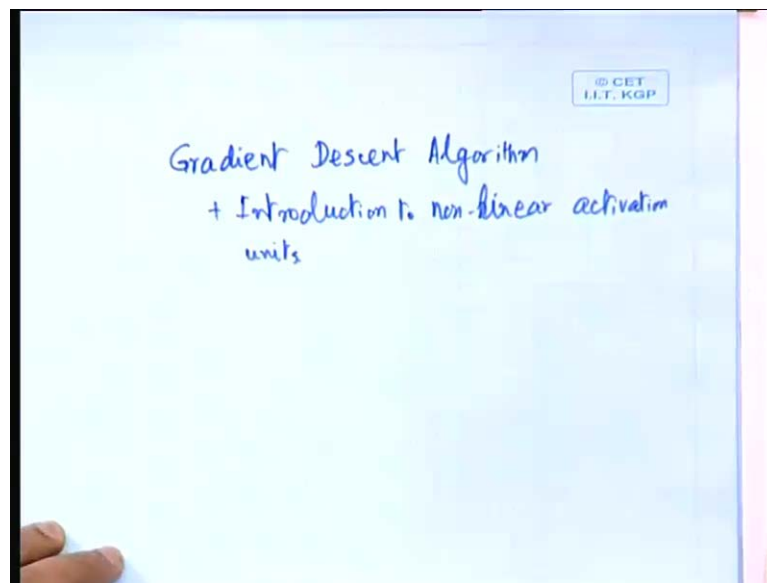 © CET
I.I.T. KGP
Gradient Descent Algorithm
+ Introduction to non-linear activation
units